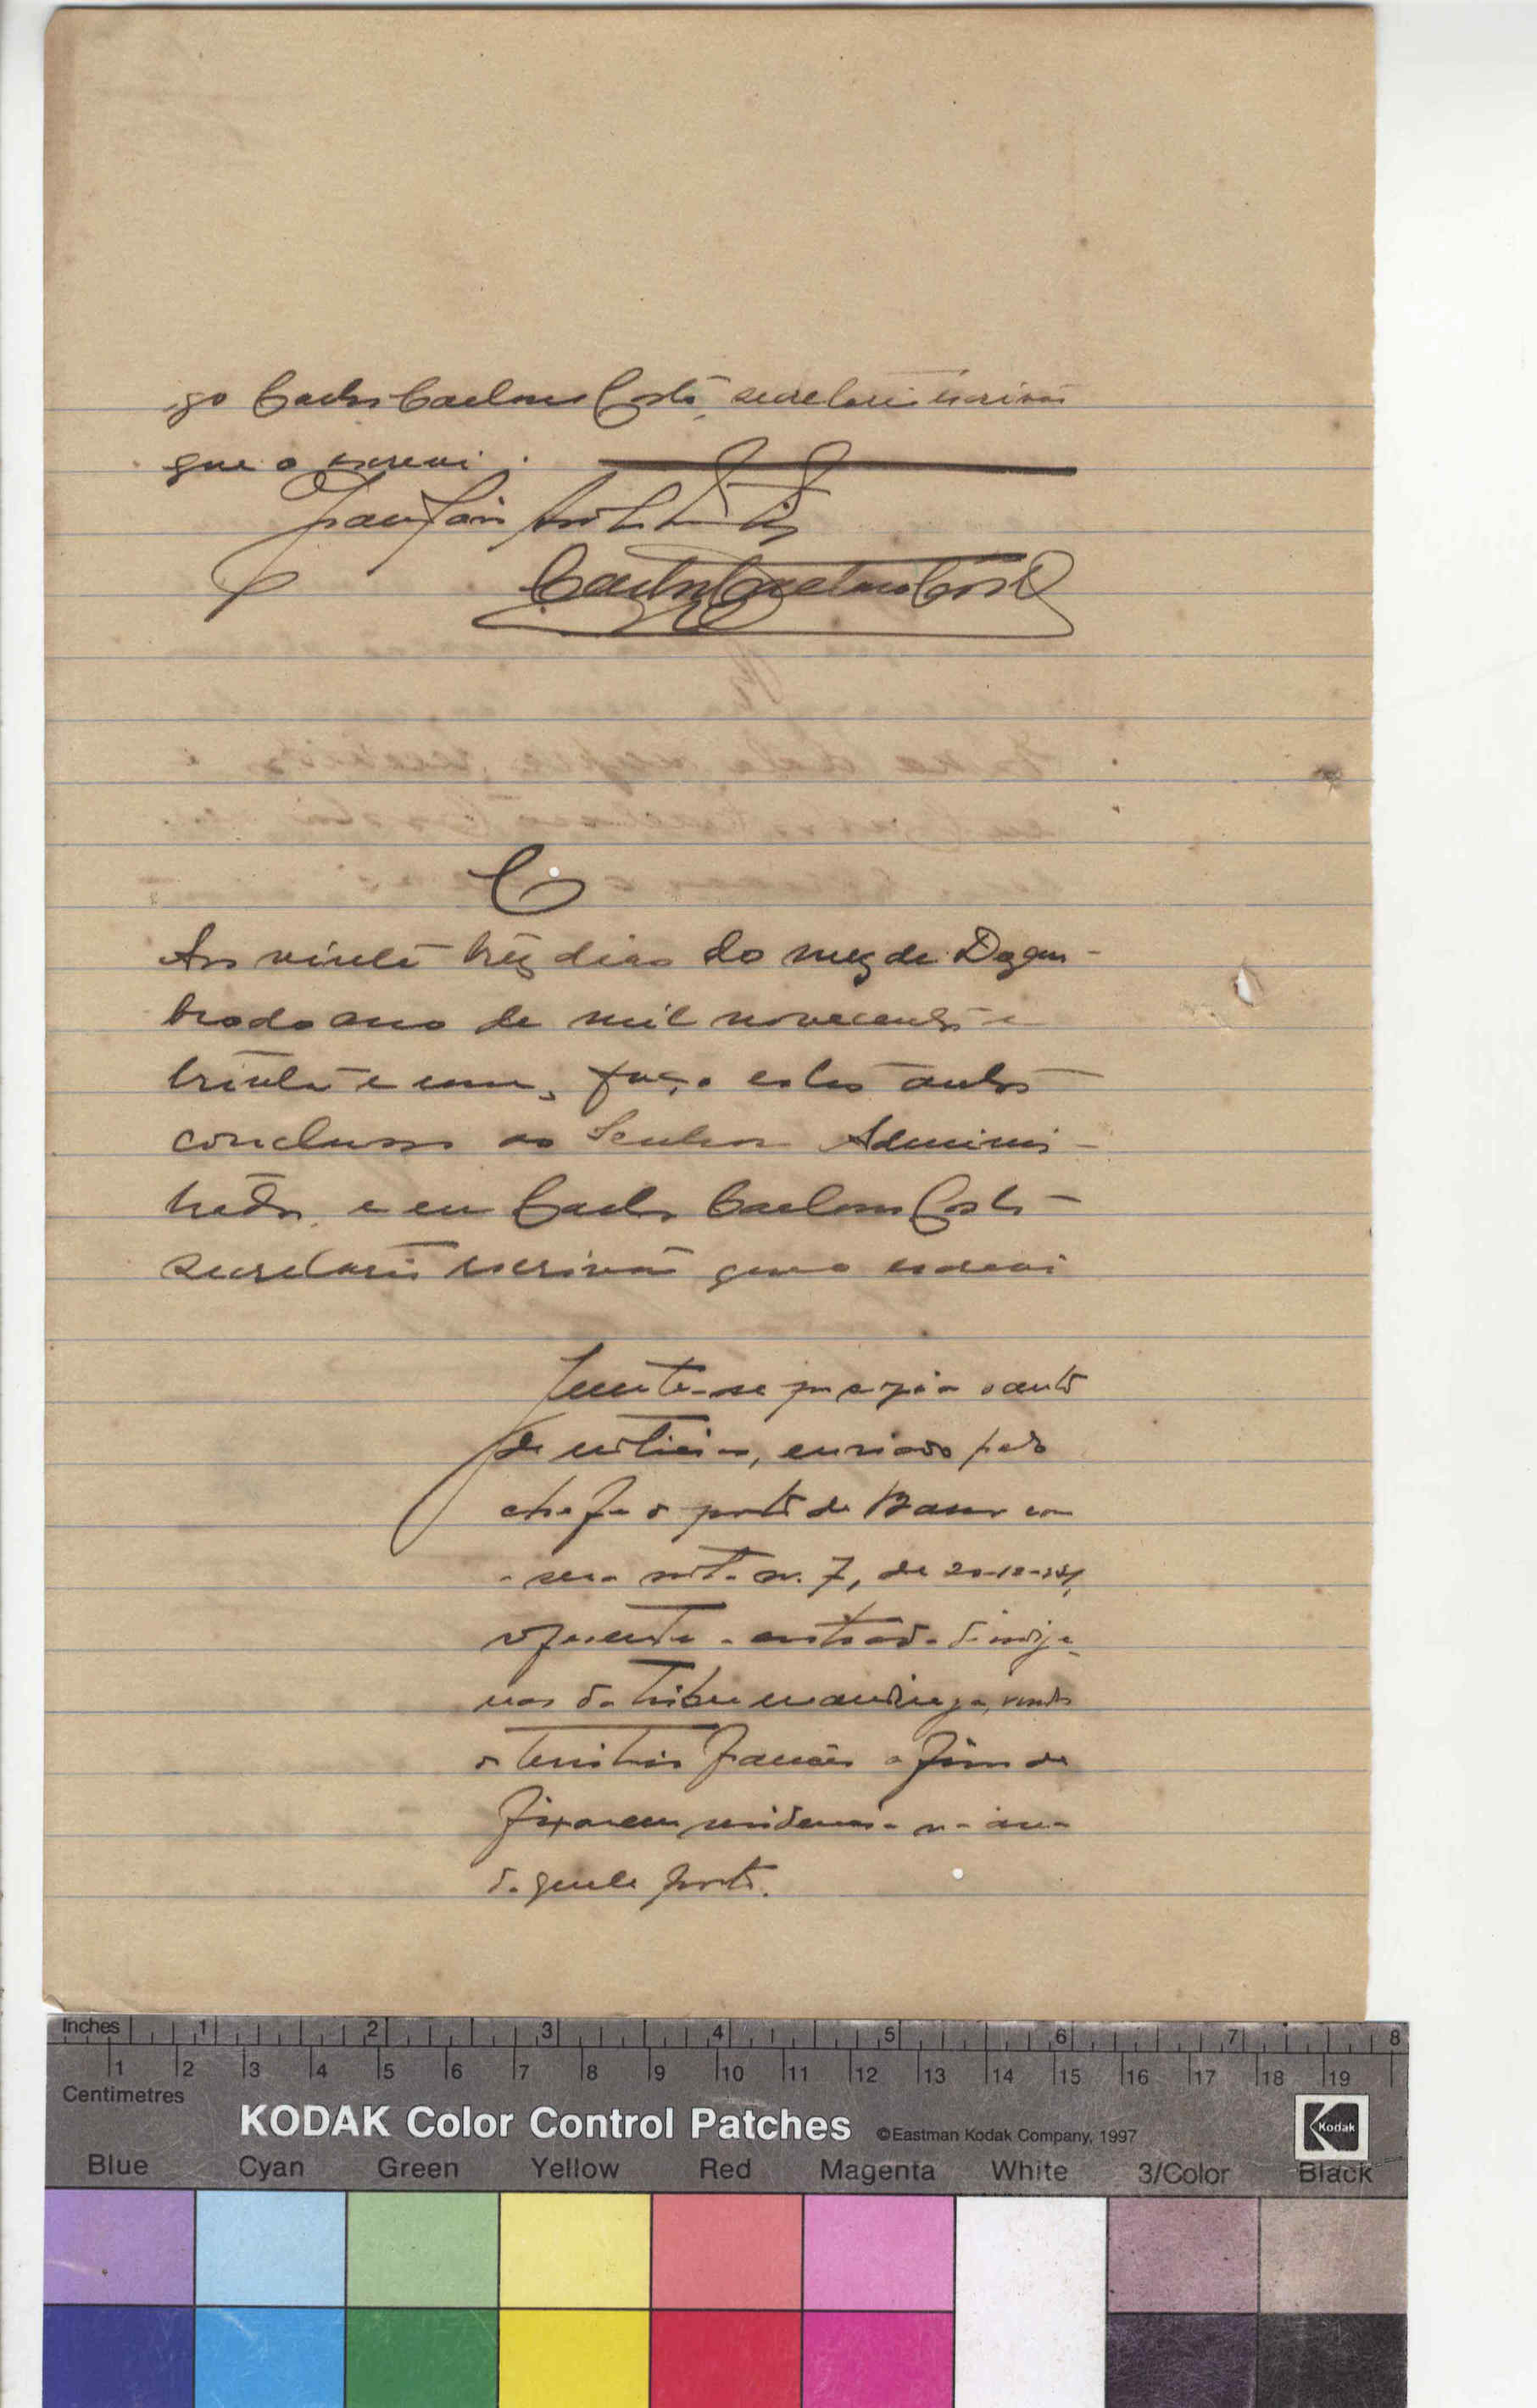 go Carlos Caetano Costa, secretario escrivão
que o escrevi.
Carlos Caetano Costa
C
Aos vinte três dias do mez de Dezem-
bro do ano de mil novecentos e
trinta e um, faço estes autos
conclusos ao Senhor Adminis-
trador, e eu Carlos Caetano Costa
secretario escrivão que o escrevi
Junte-se por copia o auto
de noticia, enviado pelo
chefe do posto de com
a sua nota nr. 7, de 20-12-931,
referente a entrada de indige-
nas da tribu mandinga, vindos
do territorio francês a fim de
fixarem residencia na area
daquele posto.
Inches 1 2 3 4 5 6 7 8
1 2 3 4 5 6 7 8 9 10 11 12 13 14 15 16 17 18 19
Centimetres
KODAK Color Control Patches ©Eastman Kodak Company, 1997
Kodak
Blue Cyan Green Yellow Red Magenta White 3/Color Black